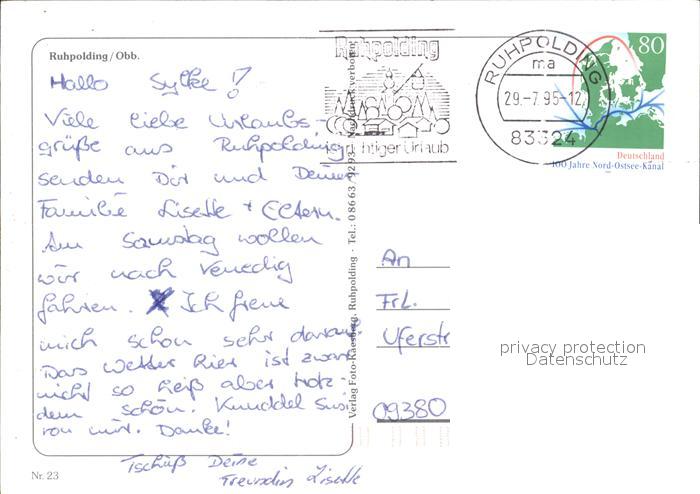 Ruhpolding/Obb.
Hallo Sylke!
Viele liebe Urlaubs-
grüße aus Ruhpolding
senden Dir und Deiner
Familie Lisette + Eltern.
Am Samstag wollen
wir nach Venedig
fahren. Ich freue
mich schon sehr darauf.
Das Wetter hier ist zwar
nicht so heiß aber trotz-
dem schön. Knuddel Susi
von mir. Danke!
Tschüß Deine
Freundin Lisette
Nr. 23
Verlag Foto-Kaesberg, Ruhpolding · Tel.: 0 86 63 / 92 93 · Nachdruck verboten
Ruhpolding
richtiger Urlaub
RUHPOLDING
ma
29.-7.95-12
83324
80
Deutschland
100 Jahre Nord-Ostsee-Kanal
An
Frl.
Uferstr
09380
privacy protection
Datenschutz